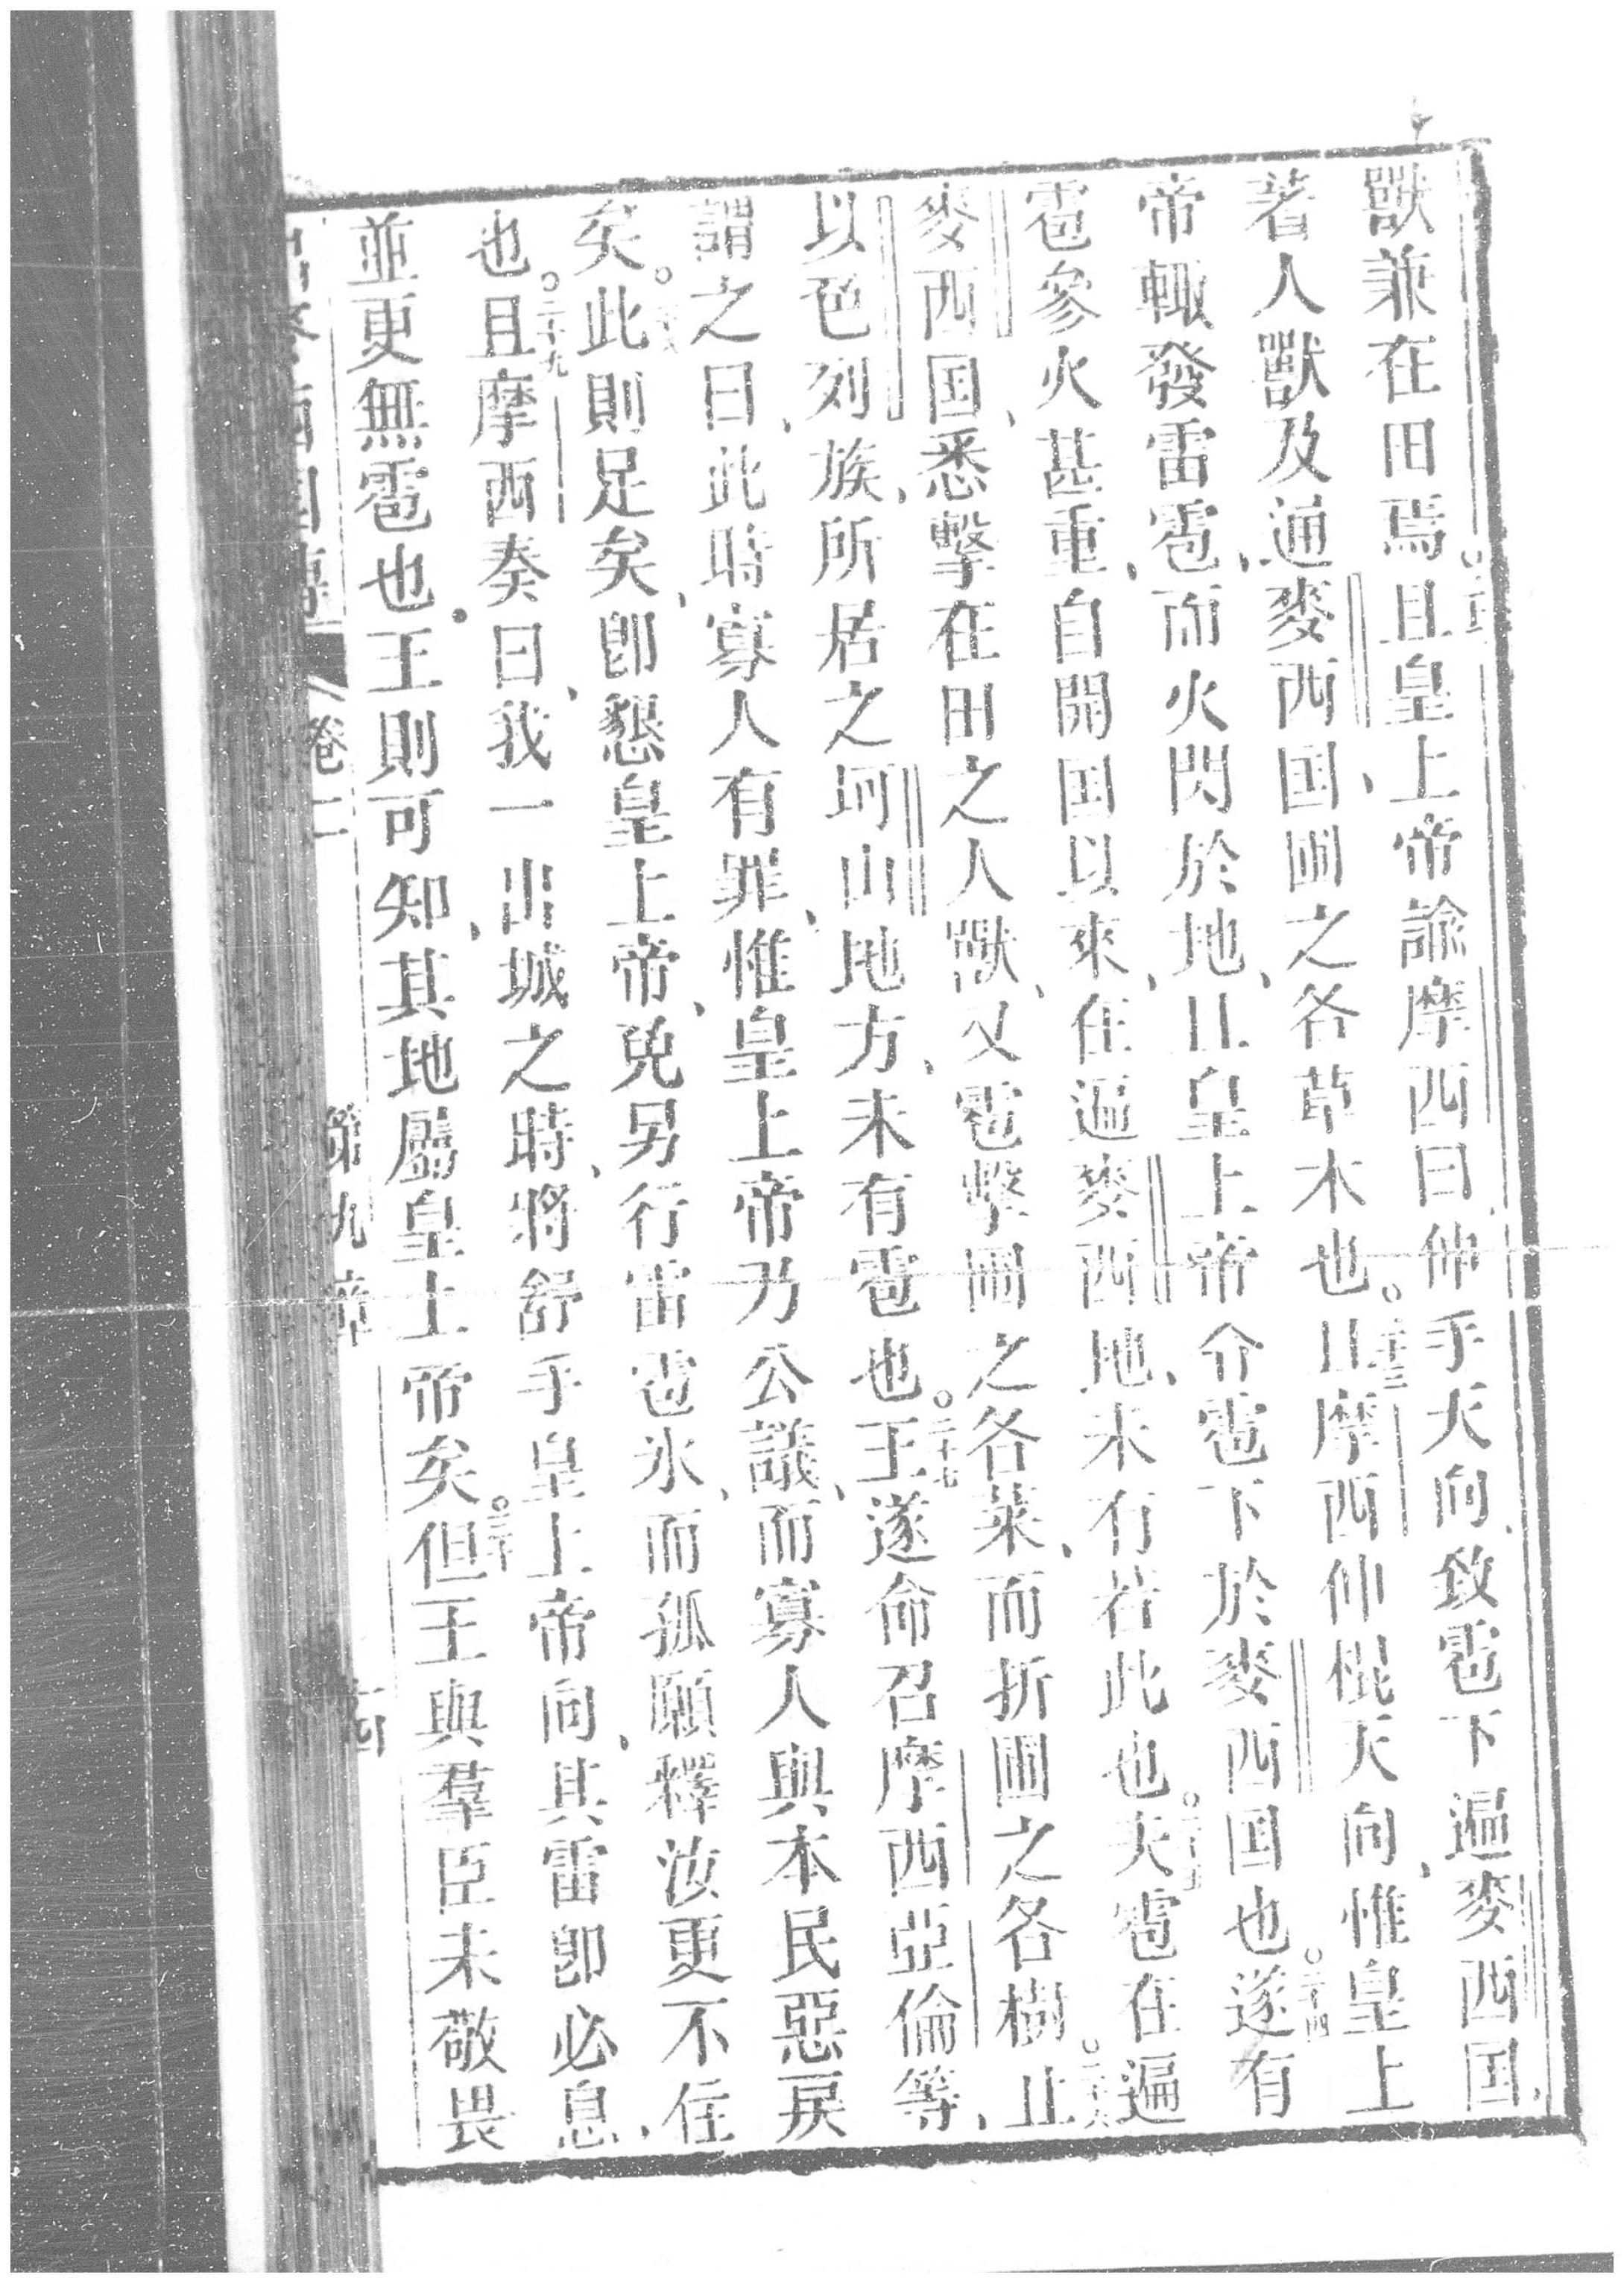 獸兼在田焉。二十二且皇上帝諭摩西曰、伸手天向、致雹下遍麥西国、
著人獸及通麥西国、圃之各草木也。二十三且摩西伸棍天向、惟皇上
帝輙發雷雹、而火閃於地、且皇上帝令雹下於麥西国也。二十四遂有
雹參火甚重、自開国以來、在遍麥西地、未有若此也。二十五夫雹在遍
麥西国、悉擊在田之人獸、又雹擊圃之各菜、而折圃之各樹。二十六止
以色列族、所居之坷山地方、未有雹也。二十七王遂命召摩西亞倫等、
謂之曰、此時寡人有罪、惟皇上帝乃公議、而寡人與本民惡戾
矣。二十八此則足矣、即懇皇上帝、免另行雷雹氷、而孤願釋汝更不住
也。二十九且摩西奏曰、我一出城之時、將舒手皇上帝向、其雷即必息、
並更無雹也。王則可知、其地屬皇上帝矣。三十但王與羣臣未敬畏
出麥西国傳 卷二 第九章 十四